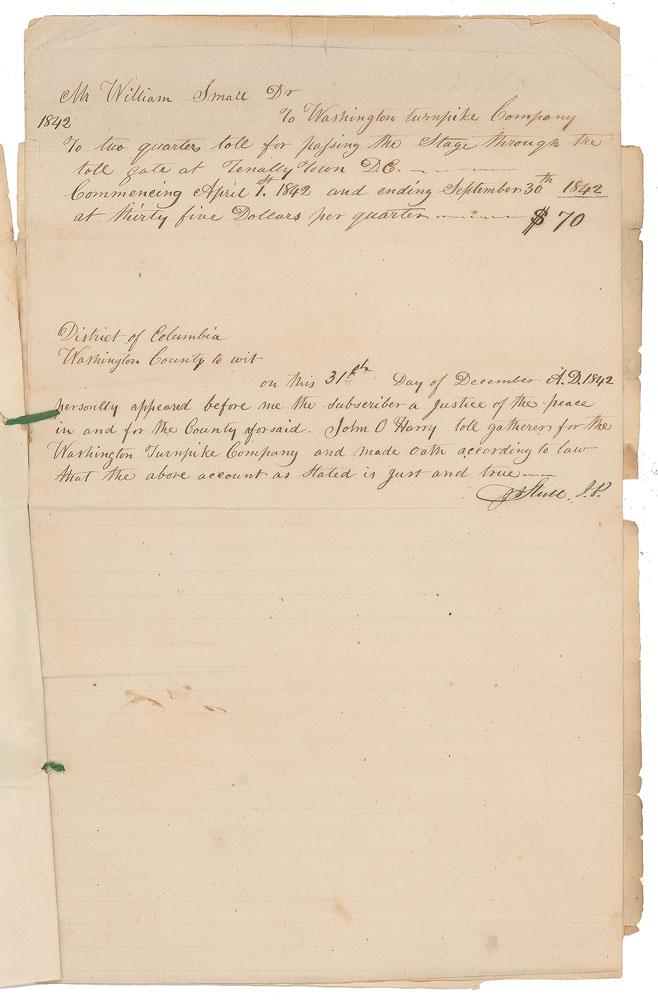 Mr William Small Dr
1842 To Washington turnpike Company
To two quarters toll for passing the Stage through the
toll gate at Tenally Town D.C.
Commencing April 1.st 1842 and ending September 30th 1842
at thirty five Dollars per quarter $ 70
District of Columbia
Washington County to wit
on this 31st Day of December A.D. 1842
personlly appeared before me the subscriber a Justice of the peace
in and for the County aforsaid. John O Harry toll gatherer for the
Washington Turnpike Company and made oath according to law
that the above account as Stated is just and true
J. P.